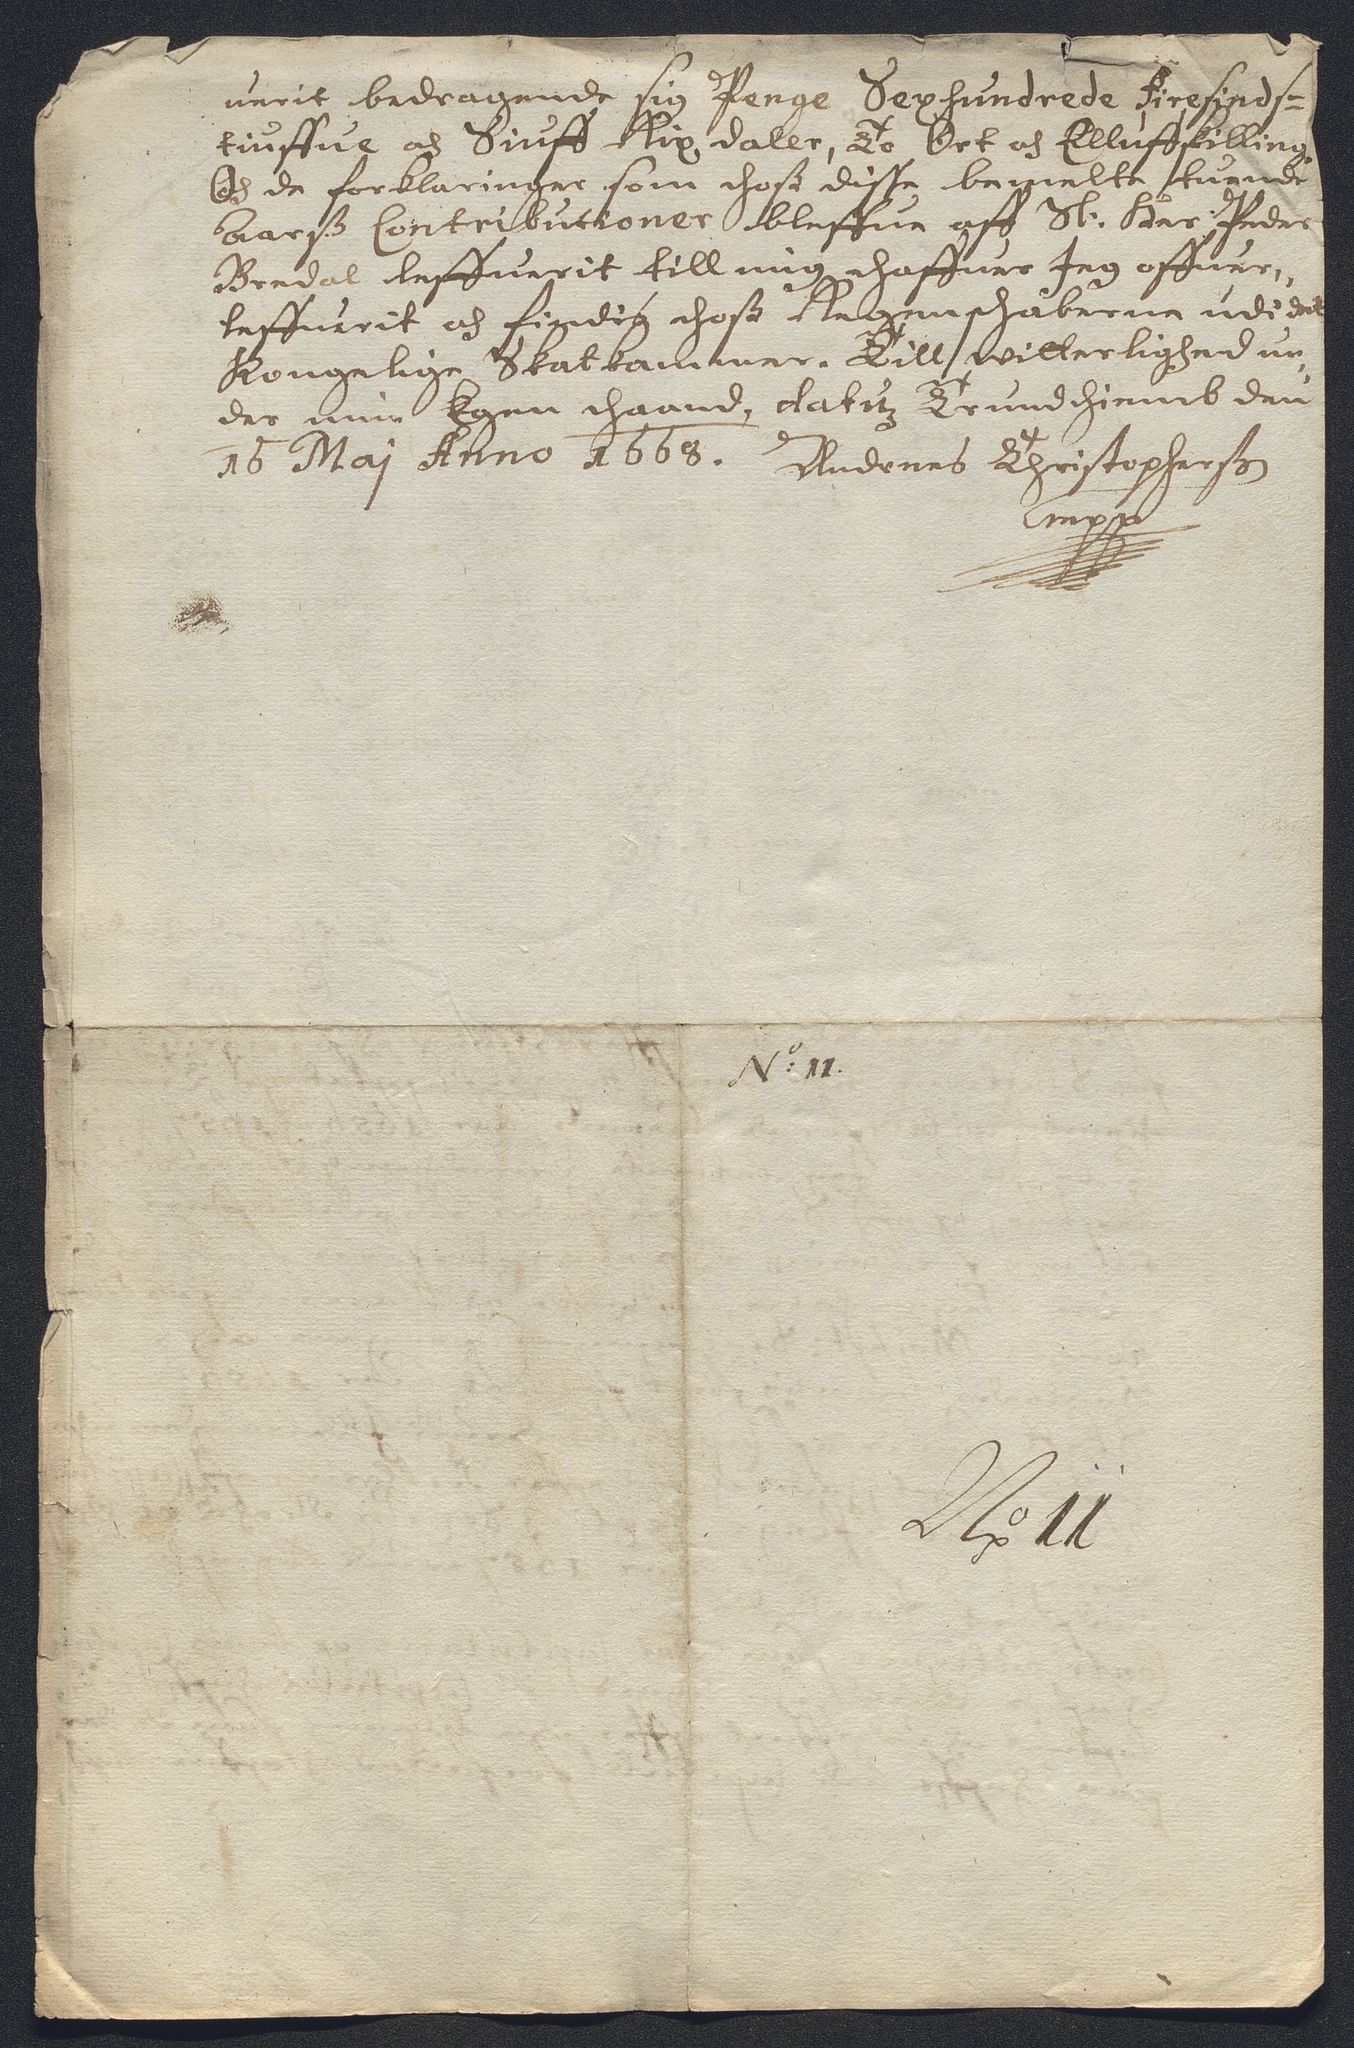 uerit bedragende sig Penge Sexhundrede firesinds-
tiuffue och Siuff Rix daler, To Ort och Elluff skilling.
Och de forklaringer som hosz disse bemelte tuende
Aarsz Contributioner bleffue aff Sl: Her Peder
Bredal leffuerit till mig, haffuer Jeg offuer,,
leffuerit och findis hosz Regenschaberne udi det
Kongelige Skatkammer. Till witterlighed un,,
der min Egen haand, datitz Trundhiemb den
16 Maj Anno 1668. Andreas Christophersz
mpp
No: 11.
No 11